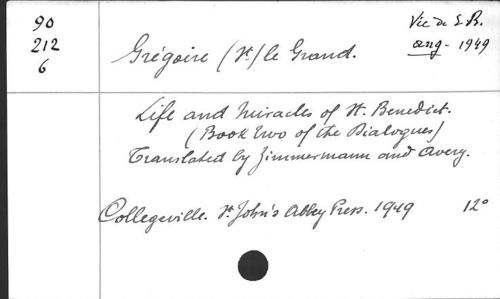 90
212
6
Grégoire (St) le Grand.
Vie de S.B.
ang - 1949
Life and Miracles of St. Benedict.
(Book Two of the Dialogues)
Translated by Zimmermann and Avery.
Collegeville. St John's Abbey Press. 1949 12°